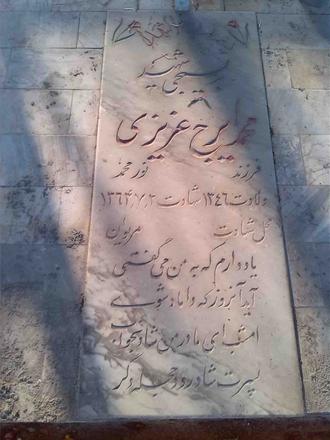 بسیجی شهید
محمد ایرج عزیزی
فرزند نورمحمد
ولادت ۱۳۴۶ شهادت ۱۳۶۴٫۷٫۲
محل شهادت مریوان
یاد دارم که به من می گفتی
آید آنروز که داماد شوی
امشب ای مادر من شاد بخواب
پسرت شاد رود حجله دگر